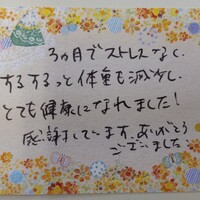 3ヵ月でストレスなく、
するするっと体重も減少し、
とても健康になれました！
感謝しています。ありがとう
ございました